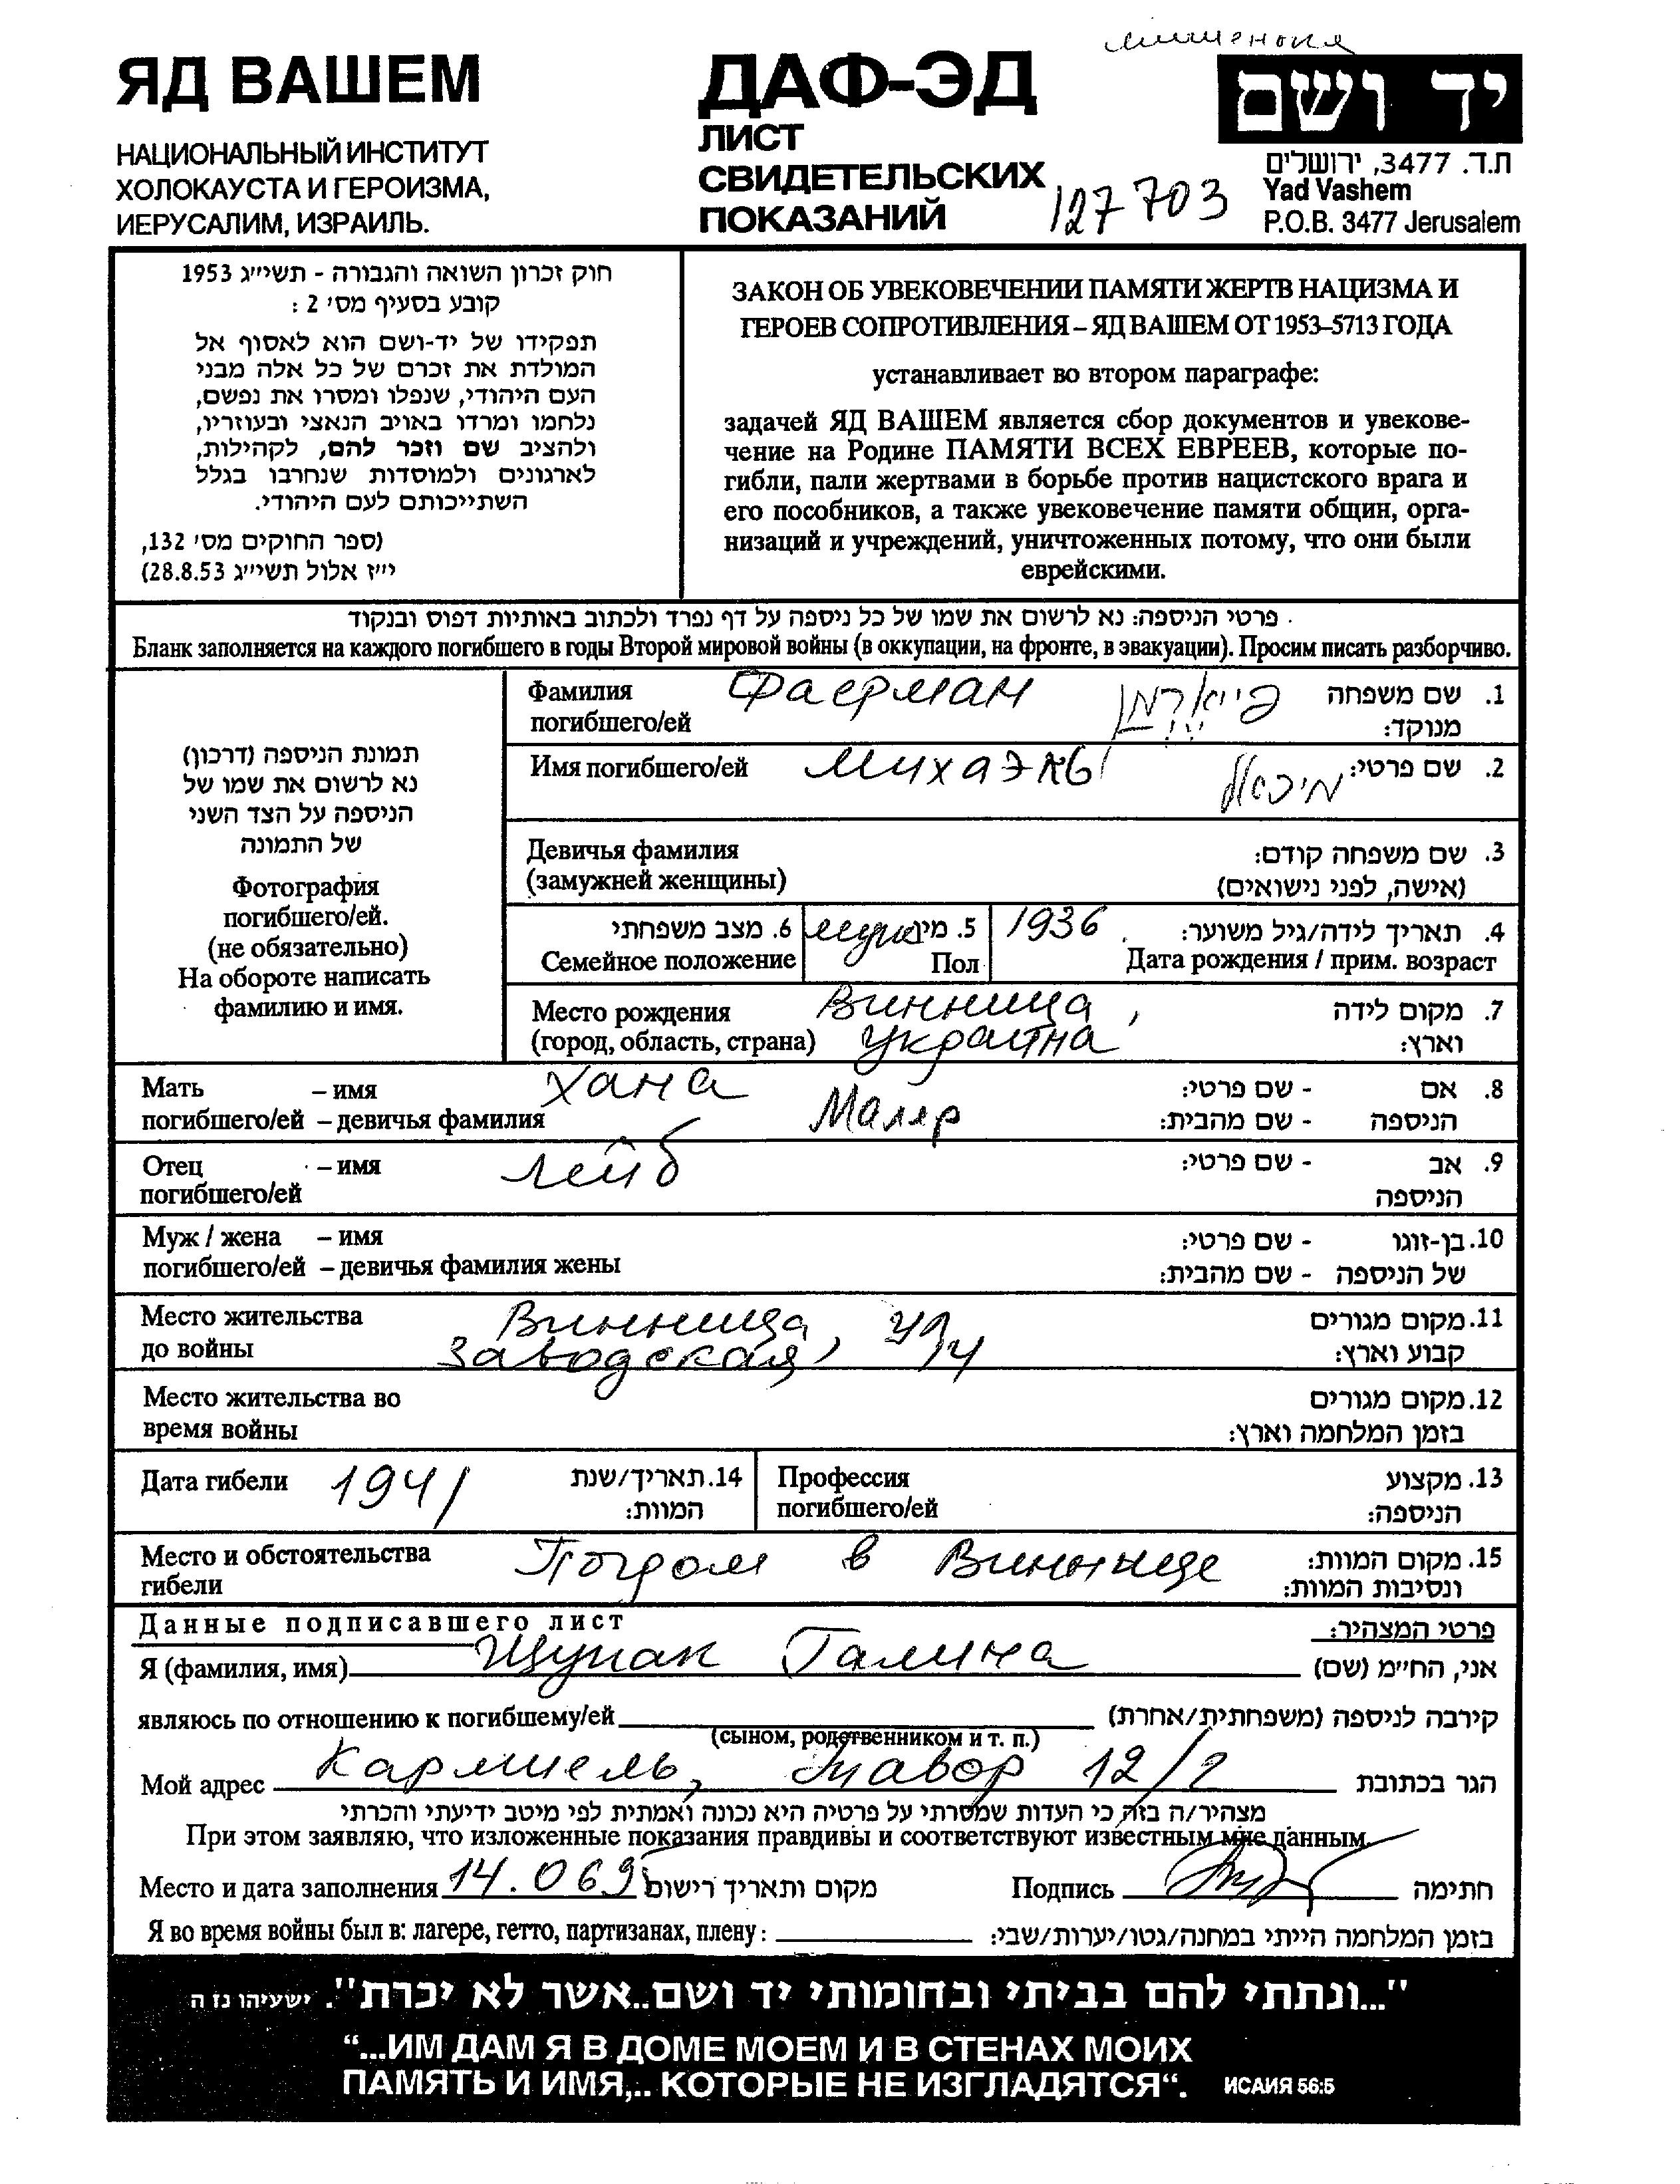 ЯД ВАШЕМ
НАЦИОНАЛЬНЫЙ ИНСТИТУТ
ХОЛОКАУСТА И ГЕРОИЗМА,
ИЕРУСАЛИМ, ИЗРАИЛЬ.
ДАФ-ЭД
ЛИСТ
СВИДЕТЕЛЬСКИХ
ПОКАЗАНИЙ
127703
יד ושם
ת.ד. 3477, ירושלים
Yad Vashem
P.O.B. 3477 Jerusalem
חוק זכרון השואה והגבורה - תשי״ג 1953
קובע בסעיף מס׳ 2 :
תפקידו של יד-ושם הוא לאסוף אל
המולדת את זכרם של כל אלה מבני
העם היהודי, שנפלו ומסרו את נפשם,
נלחמו ומרדו באויב הנאצי ובעוזריו,
ולהציב שם וזכר להם, לקהילות,
לארגונים ולמוסדות שנחרבו בגלל
השתייכותם לעם היהודי.
(ספר החוקים מס׳ 132,
י״ז אלול תשי״ג 28.8.53)
ЗАКОН ОБ УВЕКОВЕЧЕНИИ ПАМЯТИ ЖЕРТВ НАЦИЗМА И
ГЕРОЕВ СОПРОТИВЛЕНИЯ – ЯД ВАШЕМ ОТ 1953–5713 ГОДА
устанавливает во втором параграфе:
задачей ЯД ВАШЕМ является сбор документов и увекове-
чение на Родине ПАМЯТИ ВСЕХ ЕВРЕЕВ, которые по-
гибли, пали жертвами в борьбе против нацистского врага и
его пособников, а также увековечение памяти общин, орга-
низаций и учреждений, уничтоженных потому, что они были
еврейскими.
פרטי הניספה: נא לרשום את שמו של כל ניספה על דף נפרד ולכתוב באותיות דפוס ובנקוד
Бланк заполняется на каждого погибшего в годы Второй мировой войны (в оккупации, на фронте, в эвакуации). Просим писать разборчиво.
תמונת הניספה (דרכון)
נא לרשום את שמו של
הניספה על הצד השני
של התמונה
Фотография
погибшего/ей.
(не обязательно)
На обороте написать
фамилию и имя.
Фамилия Фаерман פייארמן 1. שם משפחה
погибшего/ей מנוקד:
Имя погибшего/ей Михаэль מיכאל 2. שם פרטי:
Девичья фамилия 3. שם משפחה קודם:
(замужней женщины) (אישה, לפני נישואים)
6. מצב משפחתי муж 5. מין 1936 4. תאריך לידה/גיל משוער:
Семейное положение Пол Дата рождения / прим. возраст
Место рождения Винница, 7. מקום לידה
(город, область, страна) Украина וארץ:
Мать – имя Хана 8. אם - שם פרטי:
погибшего/ей – девичья фамилия Маляр הניספה - שם מהבית:
Отец – имя Лейб 9. אב - שם פרטי:
погибшего/ей הניספה
Муж / жена – имя 10. בן-זוגו - שם פרטי:
погибшего/ей – девичья фамилия жены של הניספה - שם מהבית:
Место жительства Винница, 11. מקום מגורים
до войны Заводская, קבוע וארץ:
Место жительства во 12. מקום מגורים
время войны בזמן המלחמה וארץ:
Дата гибели 1941 14. תאריך/שנת Профессия 13. מקצוע
המוות: погибшего/ей הניספה:
Место и обстоятельства Погром в Виннице 15. מקום המוות:
гибели ונסיבות המוות:
Данные подписавшего лист פרטי המצהיר:
Я (фамилия, имя) Щупак Галина אני, הח״מ (שם)
являюсь по отношению к погибшему/ей קירבה לניספה (משפחתית/אחרת)
(сыном, родственником и т. п.)
Мой адрес Кармиель, Тавор 12/2 הגר בכתובת
מצהיר/ה בזה כי העדות שמסרתי על פרטיה היא נכונה ואמתית לפי מיטב ידיעתי והכרתי
При этом заявляю, что изложенные показания правдивы и соответствуют известным мне данным.
Место и дата заполнения 14.06 95 מקום ותאריך רישום Подпись חתימה
Я во время войны был в: лагере, гетто, партизанах, плену: בזמן המלחמה הייתי במחנה/גטו/יערות/שבי:
"...ונתתי להם בביתי ובחומותי יד ושם..אשר לא יכרת". ישעיהו נז ה
“...ИМ ДАМ Я В ДОМЕ МОЕМ И В СТЕНАХ МОИХ
ПАМЯТЬ И ИМЯ,.. КОТОРЫЕ НЕ ИЗГЛАДЯТСЯ“. ИСАИЯ 56:5